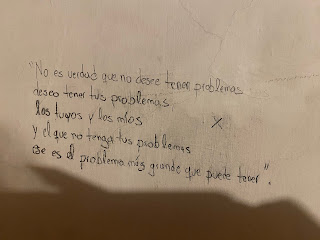 "No es verdad que no desee tener problemas
deseo tener tus problemas
los tuyos y los míos
X
y el que no tenga tus problemas
ese es el problema más grande que puede tener".